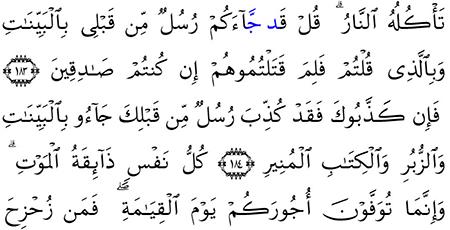 تَأۡكُلُهُ ٱلنَّارُۗ قُلۡ قَدۡ جَآءَكُمۡ رُسُلٞ مِّن قَبۡلِي بِٱلۡبَيِّنَٰتِ
وَبِٱلَّذِي قُلۡتُمۡ فَلِمَ قَتَلۡتُمُوهُمۡ إِن كُنتُمۡ صَٰدِقِينَ ١٨٣
فَإِن كَذَّبُوكَ فَقَدۡ كُذِّبَ رُسُلٞ مِّن قَبۡلِكَ جَآءُو بِٱلۡبَيِّنَٰتِ
وَٱلزُّبُرِ وَٱلۡكِتَٰبِ ٱلۡمُنِيرِ ١٨٤ كُلُّ نَفۡسٖ ذَآئِقَةُ ٱلۡمَوۡتِۗ
وَإِنَّمَا تُوَفَّوۡنَ أُجُورَكُمۡ يَوۡمَ ٱلۡقِيَٰمَةِۖ فَمَن زُحۡزِحَ